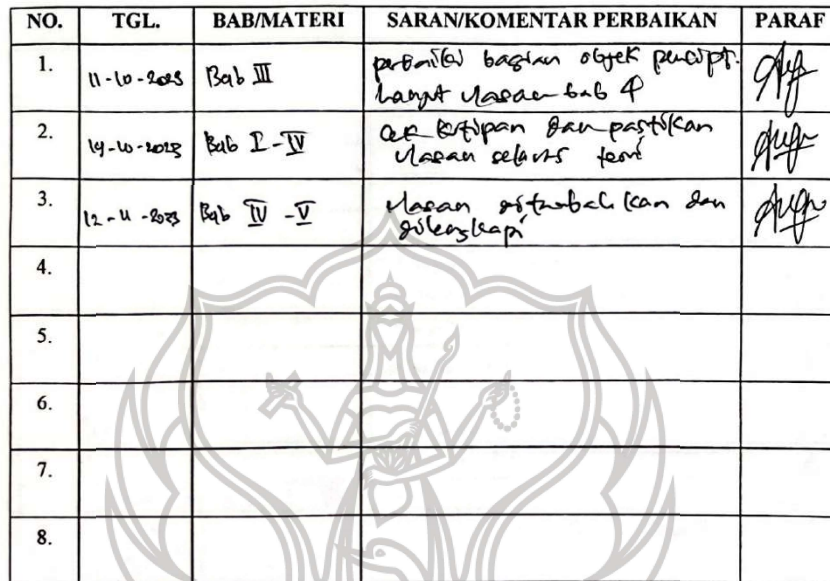 NO. TGL. BAB/MATERI SARAN/KOMENTAR PERBAIKAN PARAF
1. 11-10-2023 Bab III perbaiki bagian objek pencipt.
lanjut ulasan bab 4
2. 19-10-2023 Bab I-IV cek kutipan dan pastikan
ulasan selaras teori
3. 12-11-2023 Bab IV-V ulasan ditambahkan dan
dilengkapi
4.
5.
6.
7.
8.